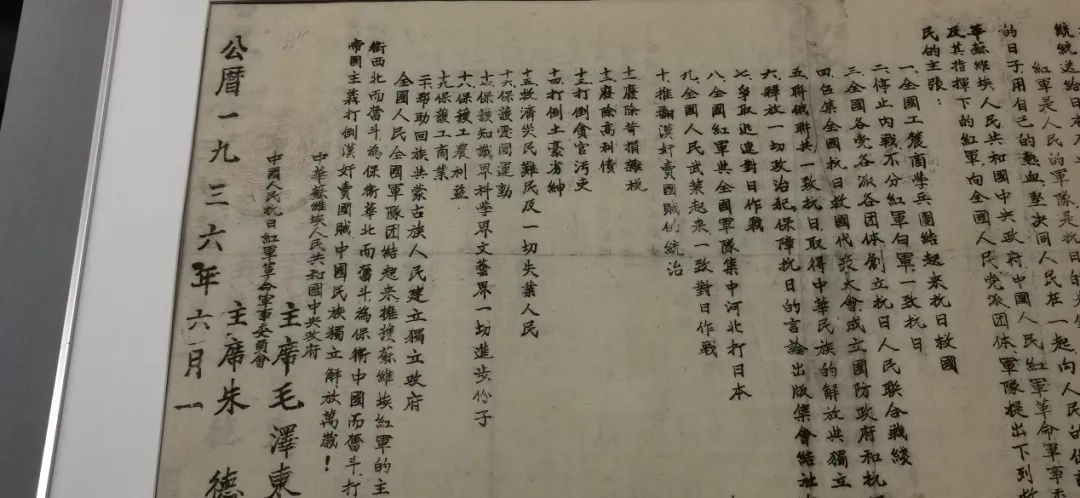 統統送給日本
紅軍是人民的軍隊是抗日的先
的日子用自己的熱血坚决同人民在一起向人民的仇
華蘇維埃人民共和國中央政府中國人民紅軍革命軍事委
及其指揮下的紅軍向全國人民党派团体軍隊提出下列救
民的主張:
一全國工農商学兵團結起来抗日救國
二停止内戰不分紅軍白軍一致抗日
三全國各党各派各团体創立抗日人民联合戰綫
四召集全國抗日救國代表大會成立國防政府和抗
五联俄联共一致抗日取得中華民族的解放與獨立
六釋放一切政治犯保障抗日的言論出版集會結社
七争取迅速對日作戰
八全國紅軍與全國軍隊集中河北打日本
九全國人民武装起来一致對日作戰
十推翻漢奸賣國賊的統治
十一廢除苛捐雜税
十二廢除高利債
十三打倒貪官污吏
十四打倒土豪劣紳
十五救濟災民難民及一切失業人民
十六保護愛國運動
十七保護知識界科学界文藝界一切進步份子
十八保護工農利益
十九保護工商業
二十帮助回族與蒙古族人民建立獨立政府
全國人民全國軍隊团結起来擁護蘇維埃紅軍的主
衛西北而奮斗為保衛華北而奮斗為保衛中國而奮斗打
帝國主義打倒漢奸賣國賊中國民族獨立解放萬歲!
中華蘇維埃人民共和國中央政府
主席毛澤東
中國人民抗日紅軍革命軍事委員會
主席朱德
公曆一九三六年六月一